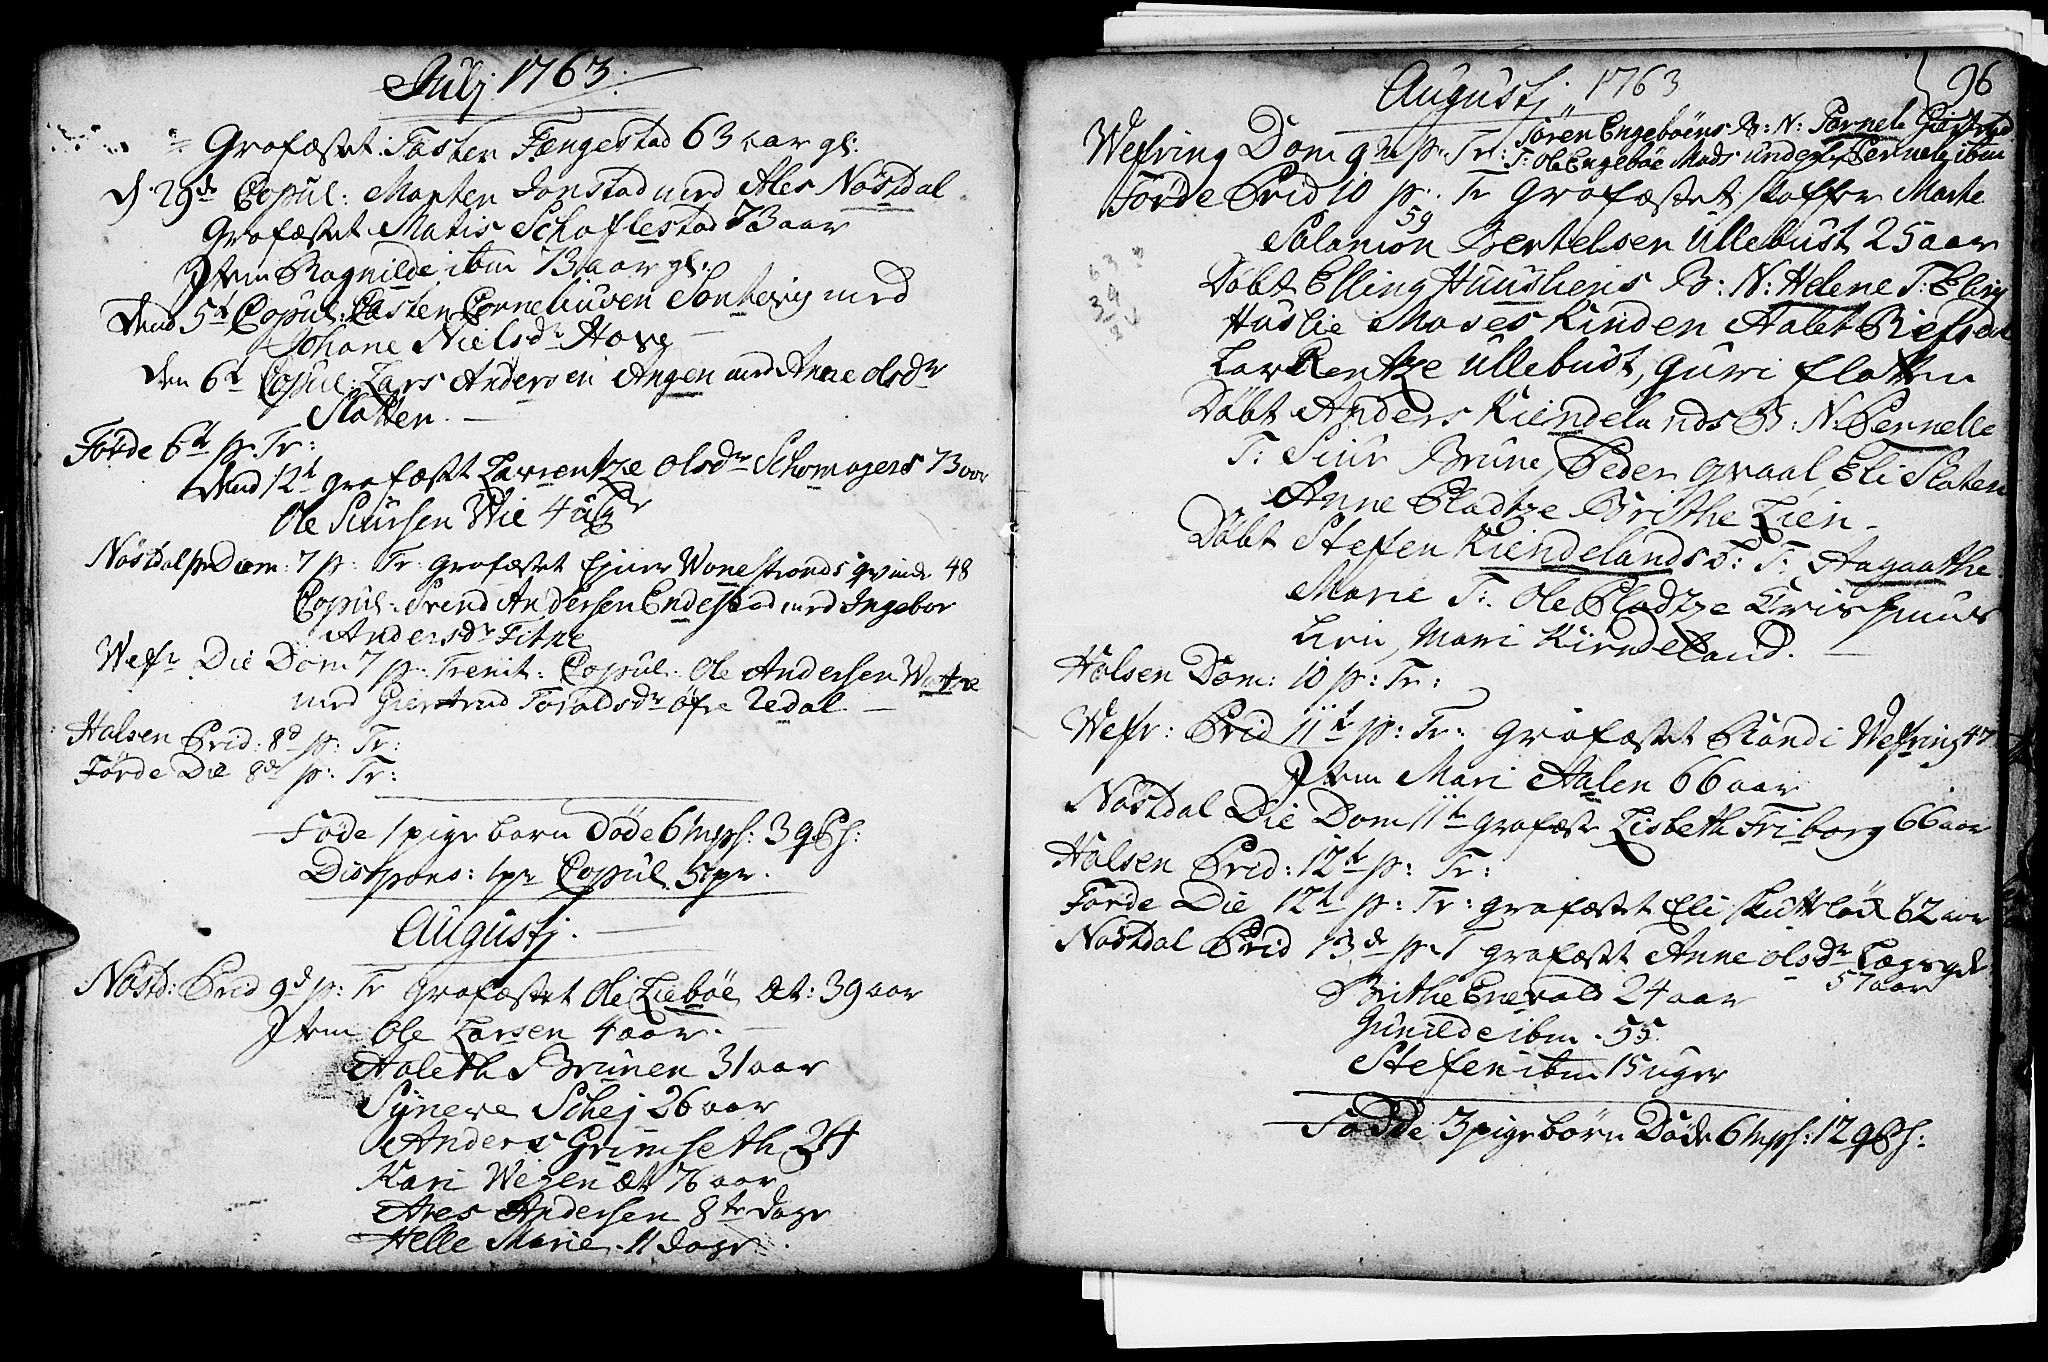 Julj 1763.
Grafæstet Fasten Fængestad 63 aar gl:
d. 29de Copul: Marten Jonstad med Ales Nöstdal
Grafæstet Matis Schaflestad 73 aar
Item Ragnilde ibm 73 aar gl:
Dend 5t Copul: Casten Corneliusen Sontvig med
Johane Nielsdr Hove
den 6t Copul: Lars Andersen Angen med Anne olsdr
Slatten.
Förde 6te p. Tr:
dend 12t grafæstt Larrentze Olsdr Schomagers 73 aar
Ole Siursen Wie 4 uger
Nöstdal Dom: 7 p: Tr: grafæstet Ejner Wonestronds qvinde 48
Copul: Svend Andersen Endestad med Ingebor
Andersdr Fitne
Wefr Die Dom 7 p: Trenit: Copul: Ole Andersen
med Giertrud Joraldsdr öfre Redal
Halsen Prid: 8d p: Tr:
Förde Die 8de p: Tr:
Föde 1 pige barn Döde 6 Mpsh: 3 qPsh:
Dispons: 1 pr Copul. 5 pr.
Augustj.
Nöstd: Prid 9d p: Tr Grafæstet Ole Lieböe Æt: 39 aar
Item Ole Larsen 4 aar.
Aaleth Brunen 31 aar
Syneve Schej 26 aar
Anders Grimseth 24
Kari Wezen Æt 76 aar
Ares Andersen 8te dage
Helle Marie 11 dage
Augustj 1763
96
Wefring Dom 9de p. Tr: Sören Engeböens B: N: Pernele
T: Ole Engeböe Mads Pernele ibm
Förde Prid 10 p: Tr Grafæstet Marte
59
Salamon Bertelsen Ullebust 25 aar
63
34
Döbt Elling Huushens B: N: Helene T: Elling
Huslie Moses Kinden Aalet
Larrentze Ullebust, Guri flatten
Döbt Anders Kiendelands B: N: Pernelle
T: Siur Brune, Peder qvaal, Eli Slaten
Anne Pladtze Brithe Lien
Döbt Steffen Kiendelands B: T: Aagaathe
Marie T: Ole Pladtze
Lien, Mari Kiendeland.
Halsen Dom: 10 p: Tr:
Wefr: Prid 11te p: Tr: Grafæstet Randi Wefring 47
Item Mari Aalen 66 aar
Nöstdal Die Dom 11te grafæst Lisbeth Friborg 66 aar
Halsen Prid: 12te p: Tr:
Förde Die 12t p: Tr: grafæstet Eli 62 aar
Nöstdal Prid 13de p. T grafæstet Anne olsdr
57 aar
Brithe Enevald 24 aar
Gunilde ibm. 55.
Stefen ibm 15 uger
Födde 3 pige börn Döde 6 Mpsh: 12 qPsh: